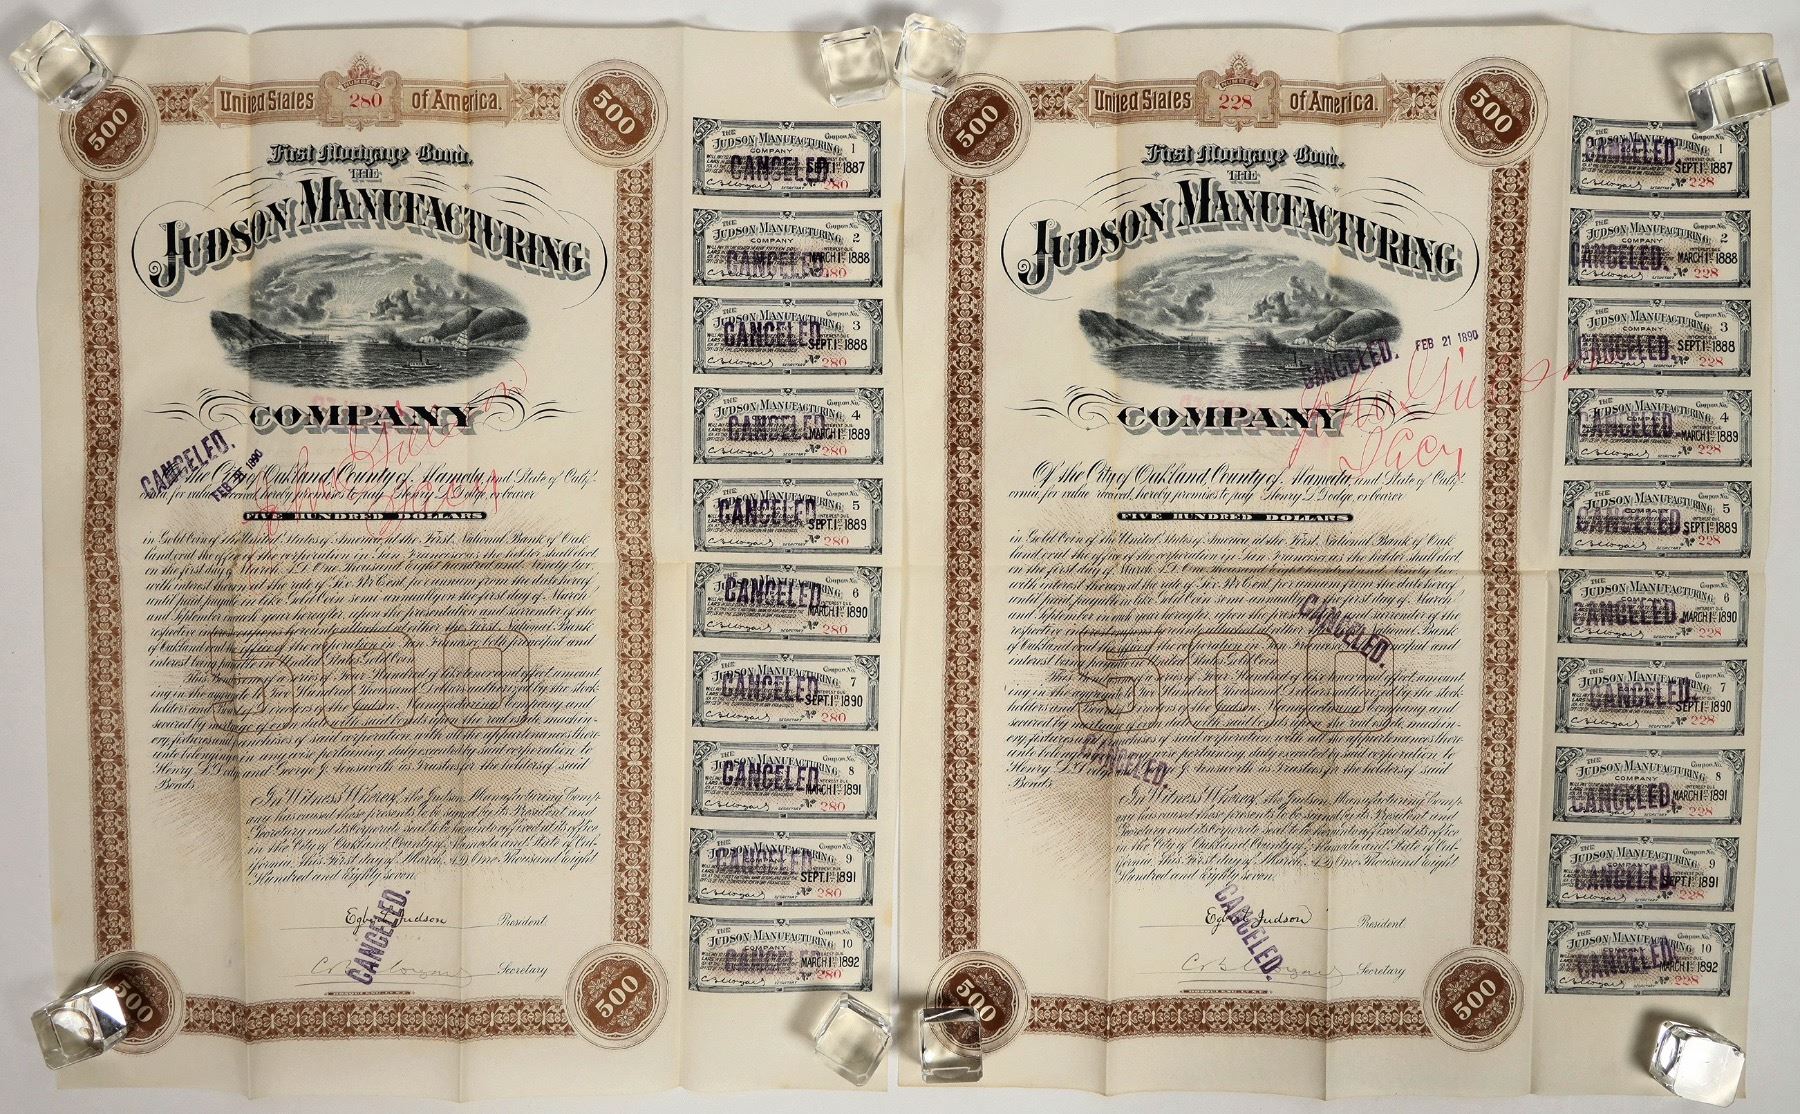 500
United States
NUMBER
280
of America.
500
First Mortgage Bond.
THE
JUDSON MANUFACTURING
COMPANY
CANCELED.
FEB 21 1890
Of the City of Oakland, County of Alameda, and State of Calif-
ornia for value received, hereby promises to pay Henry L Dodge, or bearer
FIVE HUNDRED DOLLARS
in Gold Coin of the United States of America at the First National Bank of Oak
land, or at the office of the corporation in San Francisco as the holder shall elect
on the first day of March A.D. One Thousand Eight hundred and Ninety two
with interest thereon at the rate of Six Per Cent per annum from the date hereof
until paid payable in like Gold Coin semi-annually on the first day of March
and September in each year hereafter, upon the presentation and surrender of the
respective interest coupons hereunto annexed at either the First National Bank
of Oakland or at the office of the corporation in San Francisco both principal and
interest being payable in United States Gold Coin
This Bond is one of a series of Four Hundred of like tenor and effect, amount
ing in the aggregate to Two Hundred Thousand Dollars authorized by the stock
holders and Directors of the Judson Manufacturing Company and
secured by mortgage of even date with said bonds upon the real estate machin-
ery, fixtures and franchises of said corporation with all the appurtenances there
unto belonging or in any wise pertaining duly executed by said corporation to
Henry L Dodge and George J. Ainsworth as Trustees for the holders of said
Bonds
500
In Witness Whereof, the Judson Manufacturing Comp-
any has caused these presents to be signed by its President and
Secretary and its Corporate seal to be hereunto affixed at its office
in the City of Oakland, County of Alameda and State of Cal-
ifornia, This First day of March, A.D. One Thousand Eight
Hundred and Eighty seven.
CANCELED.
Egbert Judson President
Secretary
500
500
THE JUDSON MANUFACTURING COMPANY Coupon No. 1
CANCELED. SEPT. 1ST 1887
SECRETARY No 280
THE JUDSON MANUFACTURING COMPANY Coupon No. 2
INTEREST DUE
CANCELED. MARCH 1ST 1888
SECRETARY No 280
THE JUDSON MANUFACTURING COMPANY Coupon No. 3
CANCELED. SEPT. 1ST 1888
SECRETARY No 280
THE JUDSON MANUFACTURING COMPANY Coupon No. 4
CANCELED. MARCH 1ST 1889
SECRETARY No 280
THE JUDSON MANUFACTURING COMPANY Coupon No. 5
INTEREST DUE
CANCELED. SEPT. 1ST 1889
SECRETARY No 280
THE JUDSON MANUFACTURING COMPANY Coupon No. 6
INTEREST DUE
CANCELED. MARCH 1ST 1890
SECRETARY No 280
THE JUDSON MANUFACTURING COMPANY Coupon No. 7
INTEREST DUE
CANCELED. SEPT. 1ST 1890
SECRETARY No 280
THE JUDSON MANUFACTURING COMPANY Coupon No. 8
INTEREST DUE
CANCELED. MARCH 1ST 1891
SECRETARY No 280
THE JUDSON MANUFACTURING COMPANY Coupon No. 9
INTEREST DUE
CANCELED. SEPT. 1ST 1891
SECRETARY No 280
THE JUDSON MANUFACTURING COMPANY Coupon No. 10
INTEREST DUE
CANCELED. MARCH 1ST 1892
SECRETARY No 280
500
United States
NUMBER
228
of America.
500
First Mortgage Bond.
THE
JUDSON MANUFACTURING
CANCELED. FEB 21 1890
COMPANY
Of the City of Oakland, County of Alameda, and State of Calif-
ornia for value received, hereby promises to pay Henry L Dodge, or bearer
FIVE HUNDRED DOLLARS
in Gold Coin of the United States of America at the First National Bank of Oak
land, or at the office of the corporation in San Francisco as the holder shall elect
on the first day of March A.D. One Thousand Eight hundred and Ninety two
with interest thereon at the rate of Six Per Cent per annum from the date hereof
until paid payable in like Gold Coin semi-annually on the first day of March
and September in each year hereafter, upon the presentation and surrender of the
respective interest coupons hereunto annexed at either the First National Bank
of Oakland or at the office of the corporation in San Francisco both principal and
interest being payable in United States Gold Coin
CANCELED.
This Bond is one of a series of Four Hundred of like tenor and effect, amount
ing in the aggregate to Two Hundred Thousand Dollars authorized by the stock
holders and Directors of the Judson Manufacturing Company and
secured by mortgage of even date with said bonds upon the real estate machin-
ery, fixtures and franchises of said corporation with all the appurtenances there
unto belonging or in any wise pertaining duly executed by said corporation to
Henry L Dodge and George J. Ainsworth as Trustees for the holders of said
Bonds
500
CANCELED.
In Witness Whereof, the Judson Manufacturing Comp-
any has caused these presents to be signed by its President and
Secretary and its Corporate seal to be hereunto affixed at its office
in the City of Oakland, County of Alameda and State of Cal-
ifornia, This First day of March, A.D. One Thousand Eight
Hundred and Eighty seven.
CANCELED.
Egbert Judson President
Secretary
500
500
THE JUDSON MANUFACTURING COMPANY Coupon No. 1
INTEREST DUE
CANCELED. SEPT. 1ST 1887
SECRETARY No 228
THE JUDSON MANUFACTURING COMPANY Coupon No. 2
INTEREST DUE
CANCELED. MARCH 1ST 1888
SECRETARY No 228
THE JUDSON MANUFACTURING COMPANY Coupon No. 3
INTEREST DUE
CANCELED. SEPT. 1ST 1888
SECRETARY No 228
THE JUDSON MANUFACTURING COMPANY Coupon No. 4
INTEREST DUE
CANCELED. MARCH 1ST 1889
SECRETARY No 228
THE JUDSON MANUFACTURING COMPANY Coupon No. 5
INTEREST DUE
CANCELED. SEPT. 1ST 1889
SECRETARY No 228
THE JUDSON MANUFACTURING COMPANY Coupon No. 6
INTEREST DUE
CANCELED. MARCH 1ST 1890
SECRETARY No 228
THE JUDSON MANUFACTURING COMPANY Coupon No. 7
INTEREST DUE
CANCELED. SEPT. 1ST 1890
SECRETARY No 228
THE JUDSON MANUFACTURING COMPANY Coupon No. 8
INTEREST DUE
CANCELED. MARCH 1ST 1891
SECRETARY No 228
THE JUDSON MANUFACTURING COMPANY Coupon No. 9
INTEREST DUE
CANCELED. SEPT. 1ST 1891
SECRETARY No 228
THE JUDSON MANUFACTURING COMPANY Coupon No. 10
INTEREST DUE
CANCELED. MARCH 1ST 1892
SECRETARY No 228